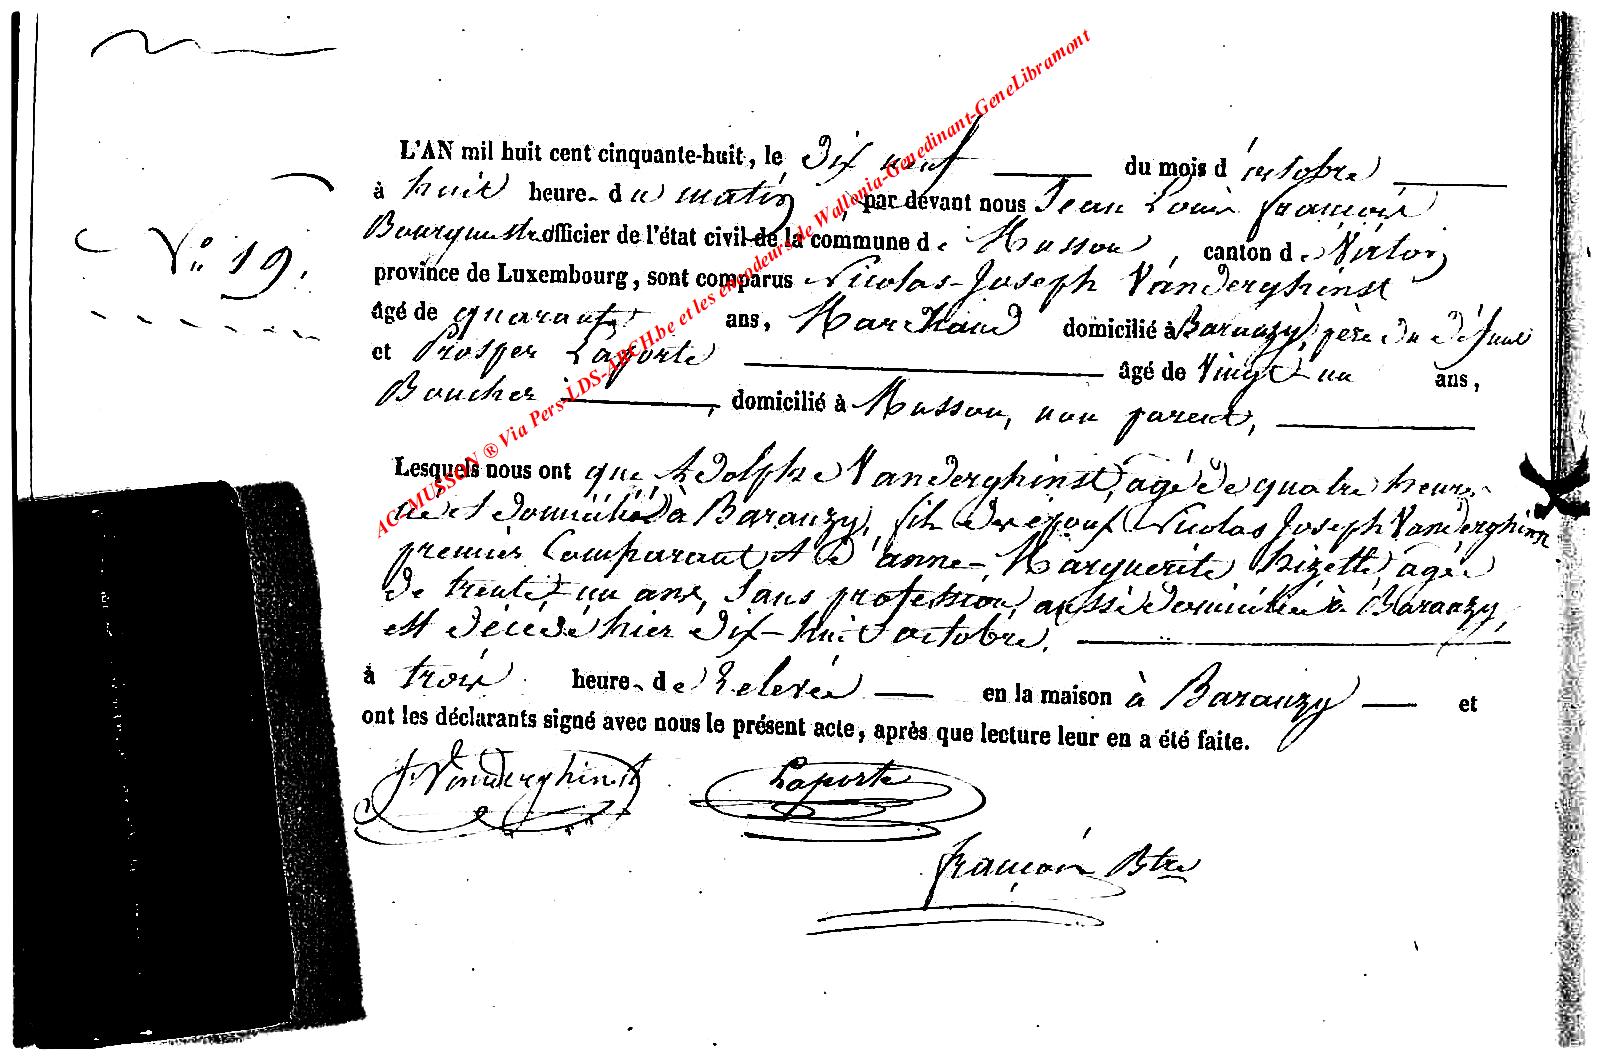 L'AN mil huit cent cinquante-huit, le Dix neuf du mois d'octobre
à huit heure. du matin, par devant nous Jean Louis françois
Bourgmestre officier de l'état civil de la commune de Musson, canton de Virton
N° 19.
province de Luxembourg, sont comparus Nicolas-Joseph Vanderghinst
âgé de quarante ans, Marchand domicilié à Baranzy, père du défunt
et Prosper Laporte âgé de Vingt-un ans,
Boucher, domicilié à Musson, non parent,
Lesquels nous ont que Adolphe Vanderghinst, agé de quatre heures
né et domicilié à Baranzy, fils des époux Nicolas Joseph Vanderghinst
premier Comparant et d'anne-Marguerite Hizette, agée
de trente-un ans, Sans profession, aussi domiciliée à Baranzy,
est décédé hier Dix-huit octobre.
à trois heure. de relevée en la maison à Baranzy et
ont les déclarants signé avec nous le présent acte, après que lecture leur en a été faite.
J. Vanderghinst Laporte
françois Btre
AC-MUSSON ® Via Pers-LDS-ARCH.be et les encodeurs de Wallonia-Genedinant-GeneLibramont